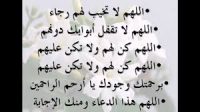 •اللهم لا تخيب لهم رجاء
•اللهم لا تقفل أبوابك دونهم
•اللهم كن لهم ولا تكن عليهم
•اللهم كن لهم ولا تكن عليهم
•برحمتك وجودك يا أرحم الراحمين
•اللهم هذا الدعاء ومنك الإجابة